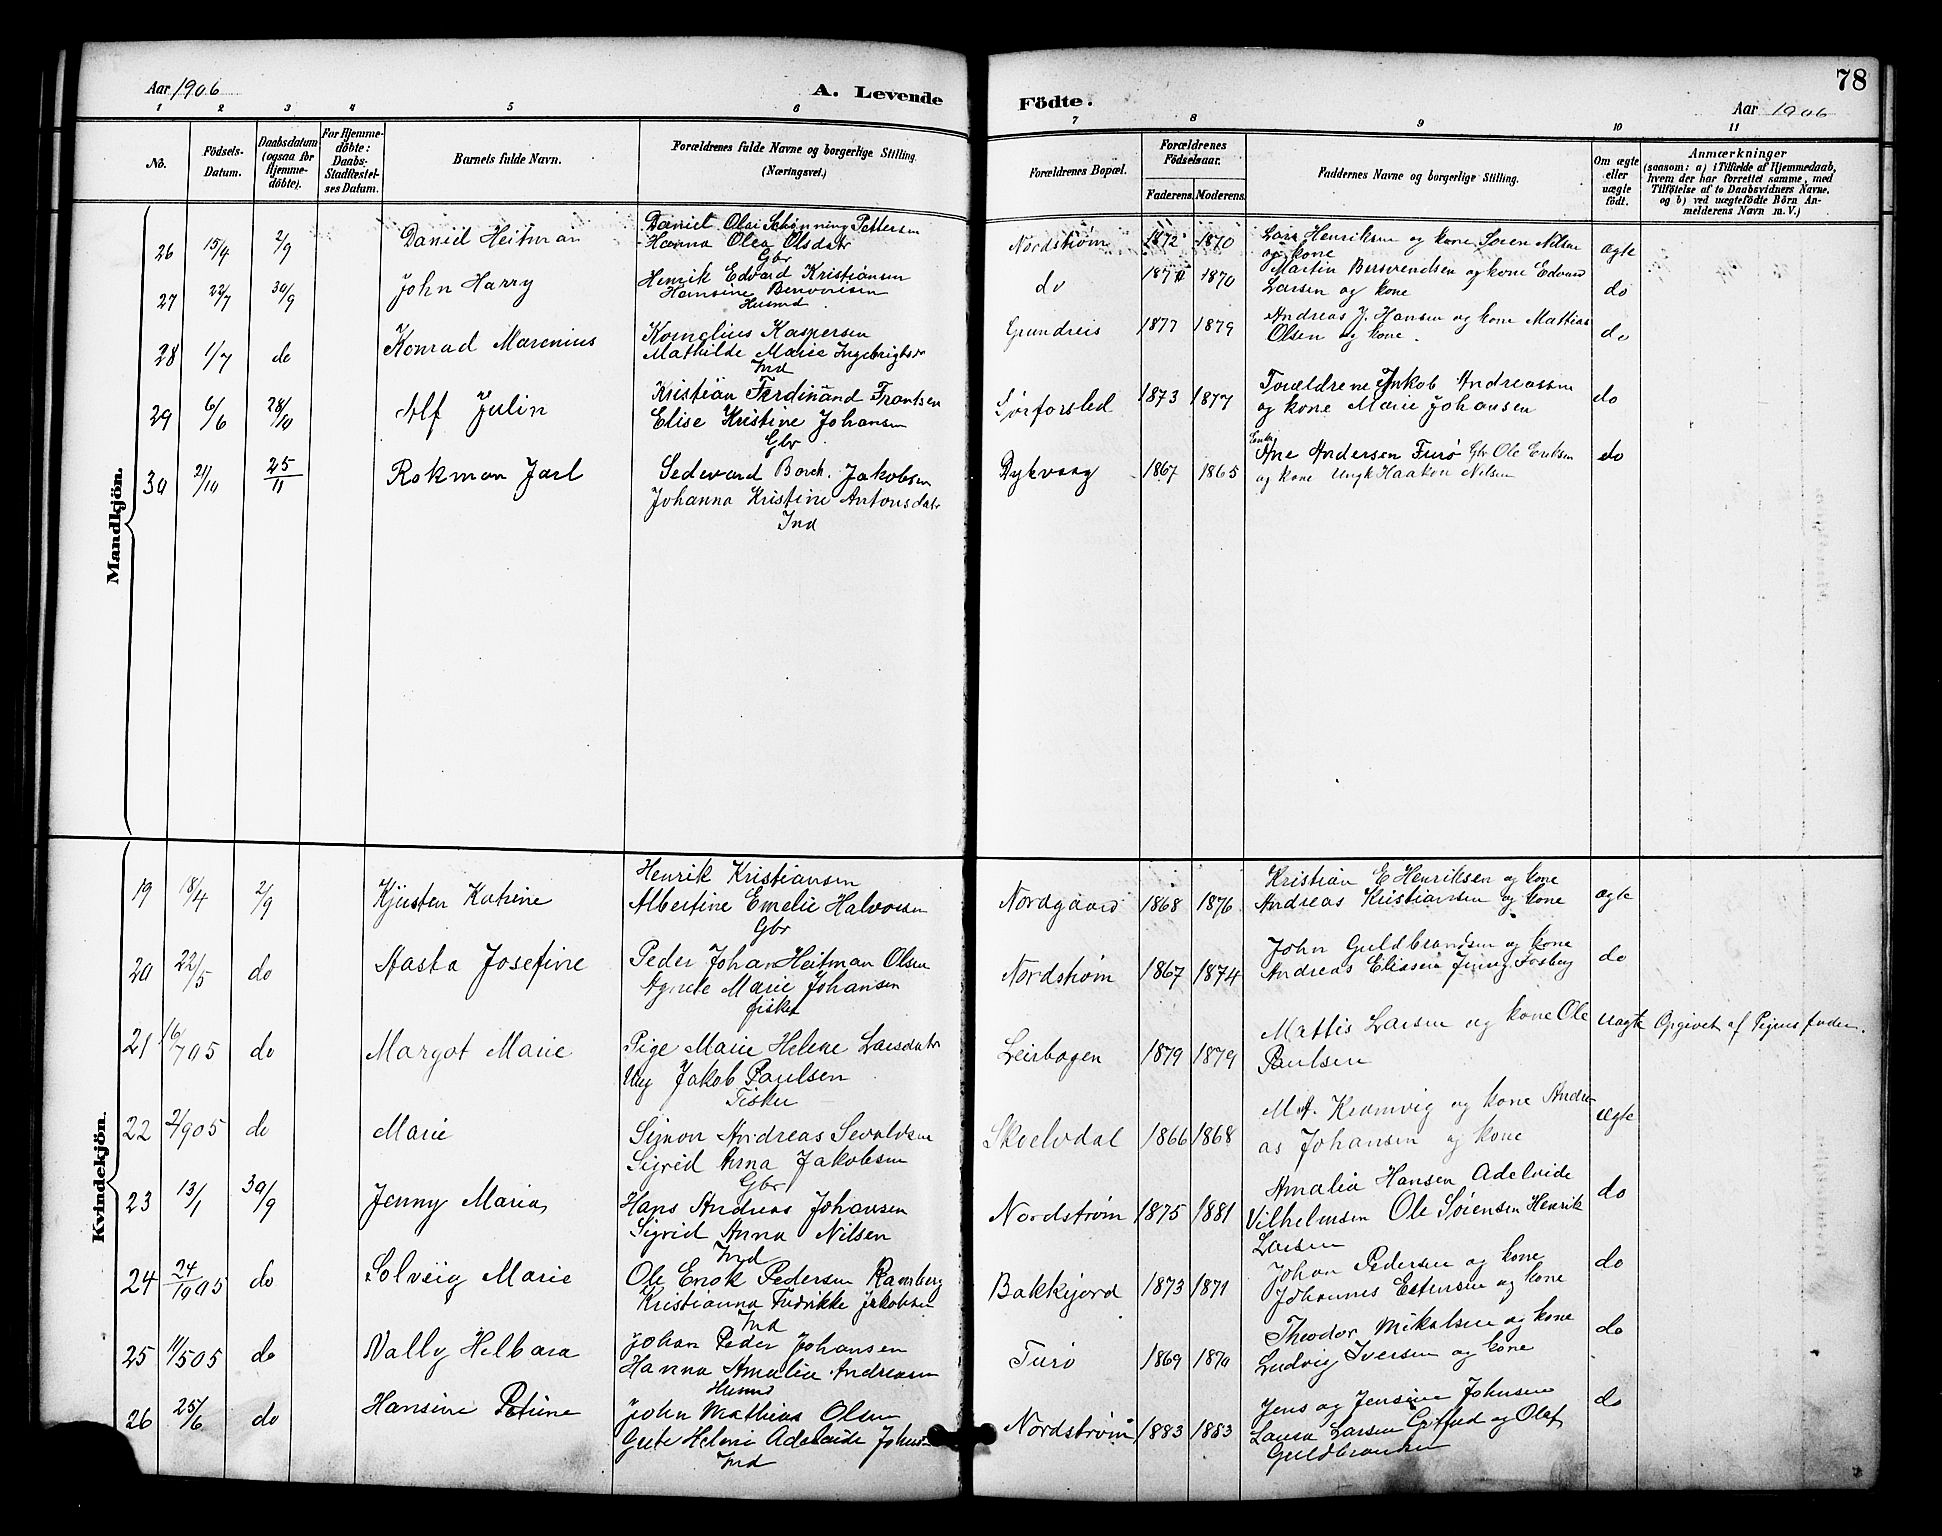 Aar 1906
A. Levende Födte.
78
Aar 1906
1 2 3 4 5 6 7 8 9 10 11
No.
Födsels-Datum.
Daabsdatum (ogsaa for Hjemme-döbte).
For Hjemme-döbte: Daabs-Stadfæstel-ses Datum.
Barnets fulde Navn.
Forældrenes fulde Navne og borgerlige Stilling. (Næringsvei.)
Forældrenes Bopæl.
Forældrenes Födselsaar.
Faderens. Moderens.
Faddernes Navne og borgerlige Stilling.
Om ægte eller uægte födt.
Anmærkninger
(saasom: a) i Tilfælde af Hjemmedaab, hvem der har forrettet samme, med Tilföielse af to Daabsvidners Navne, og b) ved uægtefödte Börn An-melderens Navn m. V.)
Mandkjön.
26 15/4 2/9 Daniel Heitman
Daniel Olai Schønning Pettersen
Hanna Olea Olsdatr
Gbr
Nordstrøm 1872 1870
Lars Henriksen og kone Søren Nilsen
og kone
ægte
27 22/7 30/9 John Harry
Henrik Edvard Kristiansen
Hansine
do 1870
Martin og kone Edvard
Larsen og kone
do
28 1/7 do Konrad Marenius
Kornelius Kaspersen
Mathilde Marie Ingebrigtsdr
Ind
Grundreis 1877 1879
Andreas J. Hansen og kone Mattias
Olsen og kone.
do
29 6/6 28/10 Alf Julin
Kristian Ferdinand Frantsen
Elise Kristine Johansen
Gbr
Sørforsled 1873 1877
Forældrene Jakob Andreassen
og kone Marie Johansen
do
30 21/10 25/11 Rokman Jarl
Sedevard Borch. Jakobsen
Johanna Kristine Antonsdatr
Ind
Dykvaag 1867 1865
Enke
Ane Andersen Turø Gbr Ole Eriksen
og kone Ungk Haakon Nilsen
do
Kvindekjön.
19 18/4 2/9 Kjersten Katrine
Henrik Kristiansen
Albertine Emelie Halvorsen
Gbr
Nordgaard 1868 1876
Kristian E Henriksen og kone
Andreas Kristiansen og kone
ægte
20 22/5 do Aasta Josefine
Peder Johan Heitman Olsen
Agnete Marie Johansen
fisker
Nordstrøm 1867 1874
John Guldbrandsen og kone
Andreas Eliasen Jenny Fosberg
do
21 16/7 05 do Margot Marie
Pige Marie Helene Larsdatr
Ung Jakob Paulsen
Fisker
Leirbogen 1879 1879
Mattis Larsen og kone Ole
Paulsen
uægte Opgivet af Pigens fader.
22 2/9 05 do Marie
Simon Andreas Sevaldsen
Sigrid Anna Jakobsen
Gbr
Skoelvdal 1866 1868
M. A. Kramvig og kone Andre-
as Johansen og kone
ægte
23 13/1 30/9 Jenny Maria
Hans Andreas Johansen
Sigrid Anna Nilsen
Ind
Nordstrøm 1875 1881
Amalia Hansen Adelvide
Vilhelmsen Ole Sørensen Henrik
Larsen
do
24 24/9 05 do Solveig Marie
Ole Enok Pedersen Ramberg
Kristianna Fredrikke Jakobsen
Ind
Bakkejord 1873 1871
Johan Pedersen og kone
Johannes Estensen og kone
do
25 11/5 05 do Vally Helbara
Johan Peder Johansen
Hanna Amalie Andreasen
Turø 1869 1870
Theodor Mikalsen og kone
Ludvig Iversen og kone
do
26 25/6 do Hansine Petrine
John Mathias Olsen
Helene Adelaide
Ind
Nordstrøm 1883 1883
Jens og Jensine Johnsen
Laura Larsen og Olaf
Guldbrandsen
do